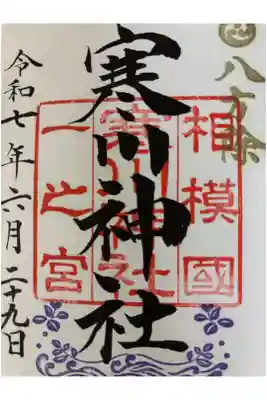 八方除
相模國
寒川神社
寒川神社
一之宮
令和七年六月二十九日